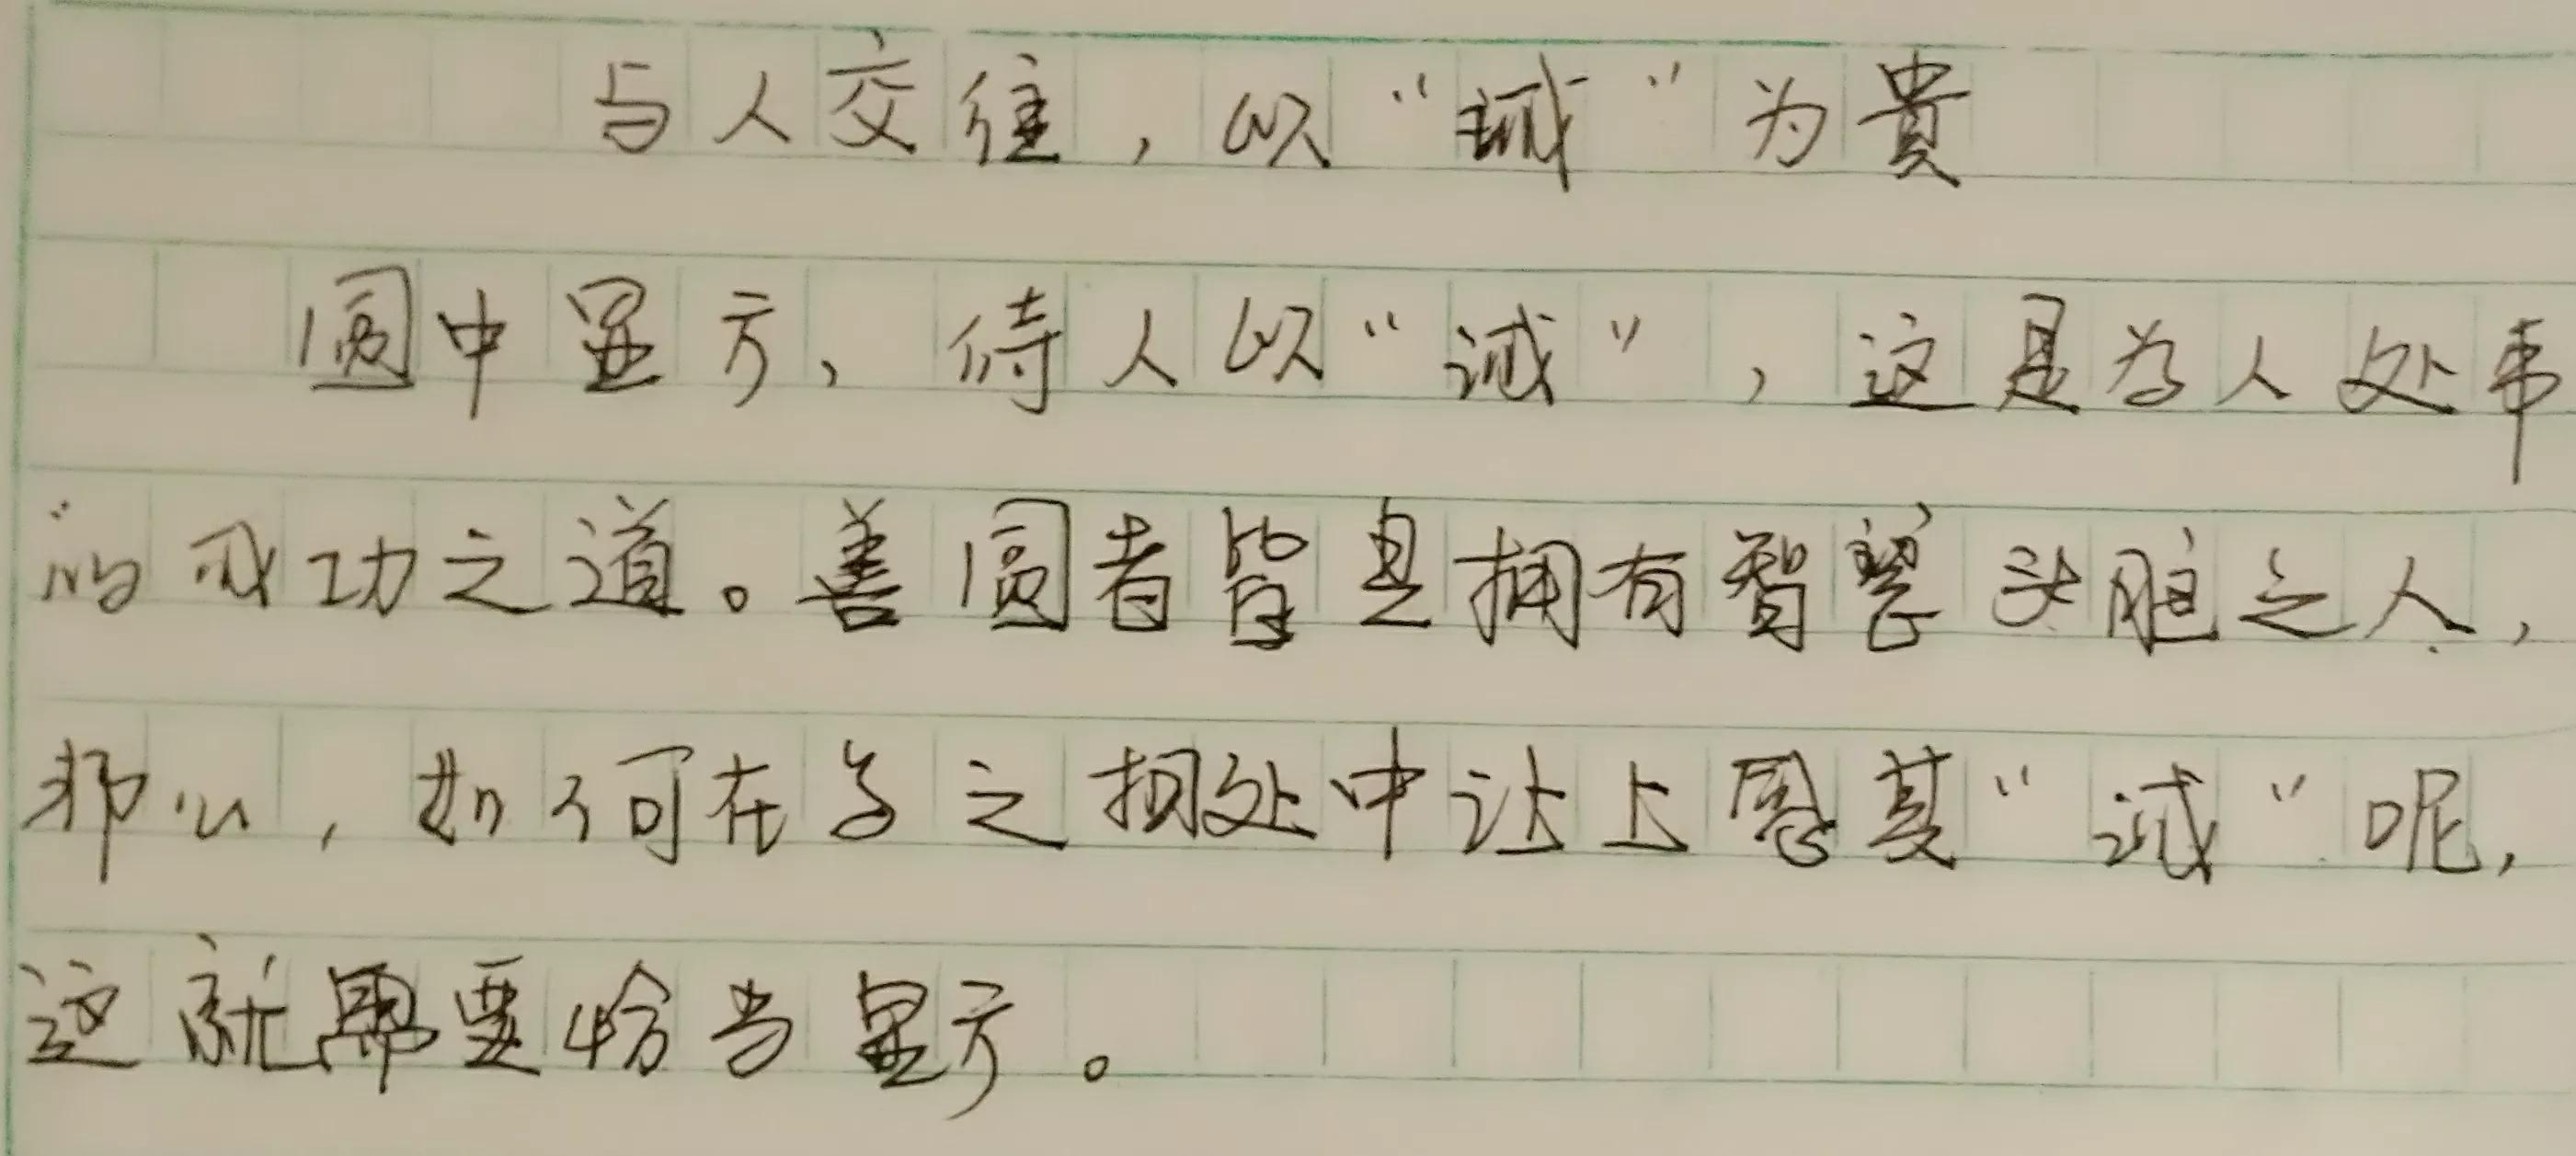 与人交往，以“诚”为贵
圆中显方，待人以“诚”，这是为人处事
的成功之道。善圆者皆是拥有智慧头脑之人，
那么，如何在与之相处中让上感其“诚”呢，
这就需要恰当显方。